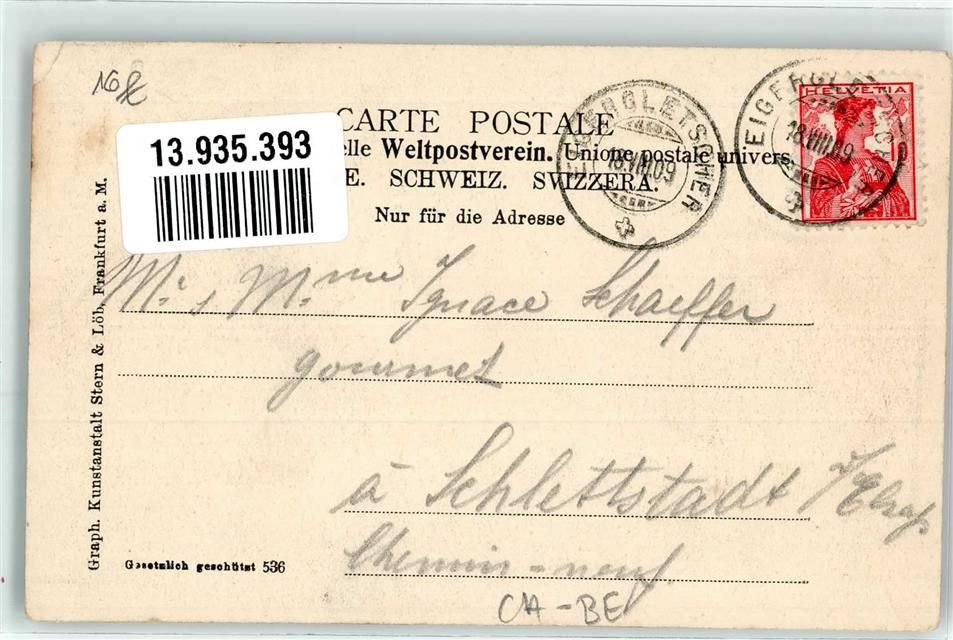 CARTE POSTALE
13.935.393
elle Weltpostverein. Unione postale univers.
E. SCHWEIZ. SVIZZERA.
Nur für die Adresse
EIGERGLETSCHER
18.VIII.09
EIGERGLETSCHER
18.VIII.09
HELVETIA
Mr, Mme Ignace Schaeffer
gourmet
à Schlettstadt i/Elsass
Chemin-neuf
CH-BE
Graph. Kunstanstalt Stern & Löb, Frankfurt a. M.
Gesetzlich geschützt 536